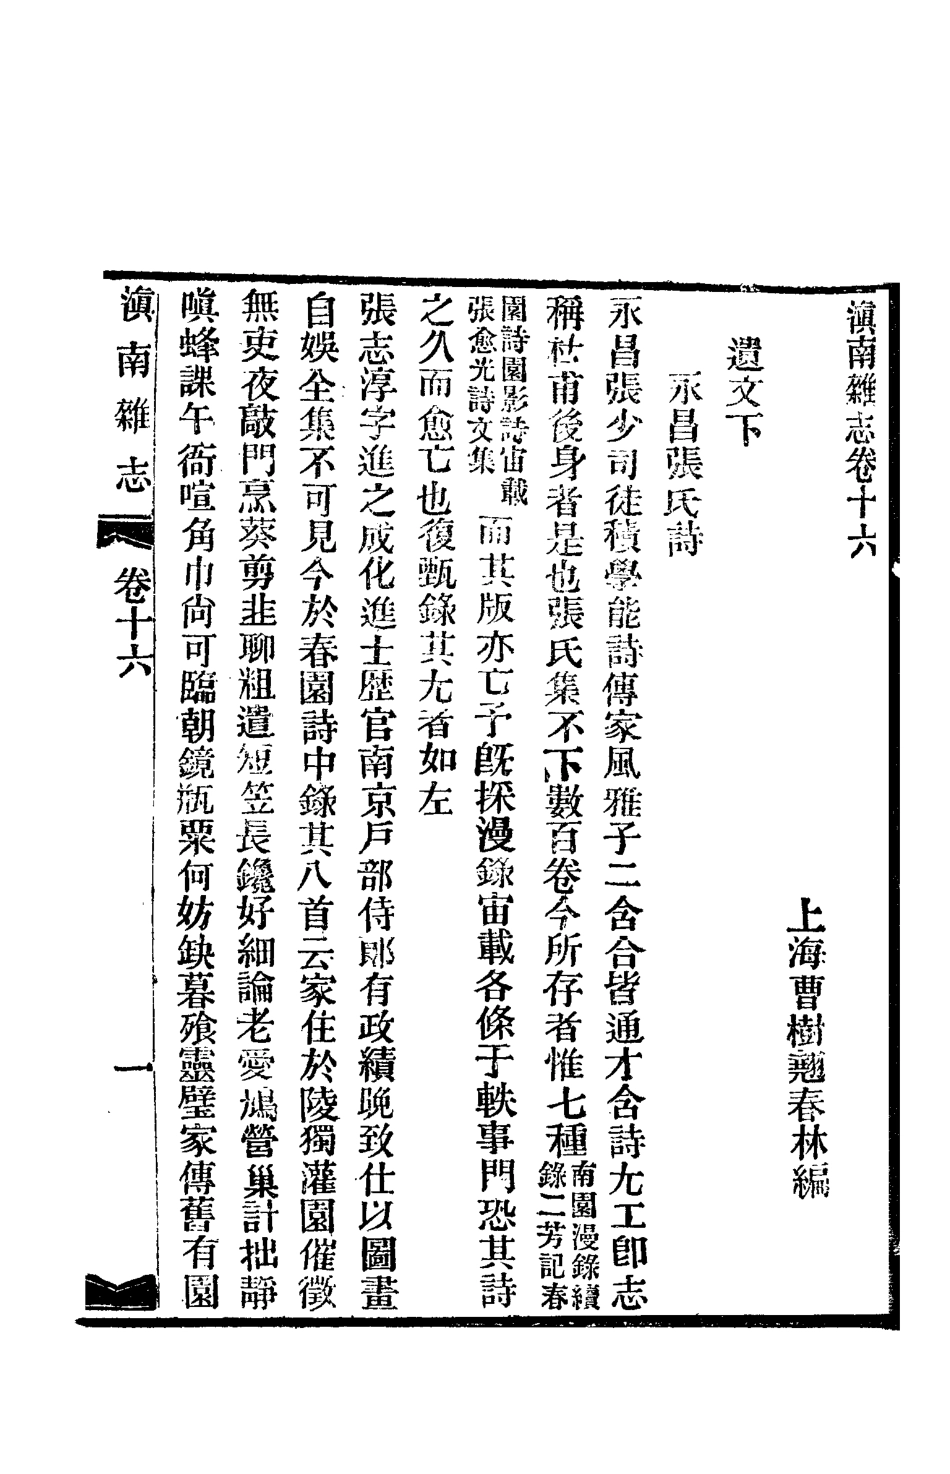 滇南雜志卷十六
上海曹樹翹春林編
遺文下
永昌張氏詩
永昌張少司徒積學能詩傳家風雅子二含合皆通才含詩尤工卽志
稱杜甫後身者是也張氏集不下數百卷今所存者惟七種南園漫錄續
錄二芳記春
園詩園影詩宙載
張愈光詩文集而其版亦亡予旣採漫錄宙載各條于軼事門恐其詩
之久而愈亡也復甄錄其尤者如左
張志淳字進之成化進士歷官南京戶部侍郎有政績晚致仕以圖畫
自娛全集不可見今於春園詩中錄其八首云家住於陵獨灌園催徵
無吏夜敲門烹葵剪韭聊粗遣短笠長鑱好細論老愛鳩營巢計拙靜
嗔蜂課午衙喧角巾尙可臨朝鏡瓶粟何妨缺暮飱靈璧家傳舊有園
滇南雜志 卷十六 一